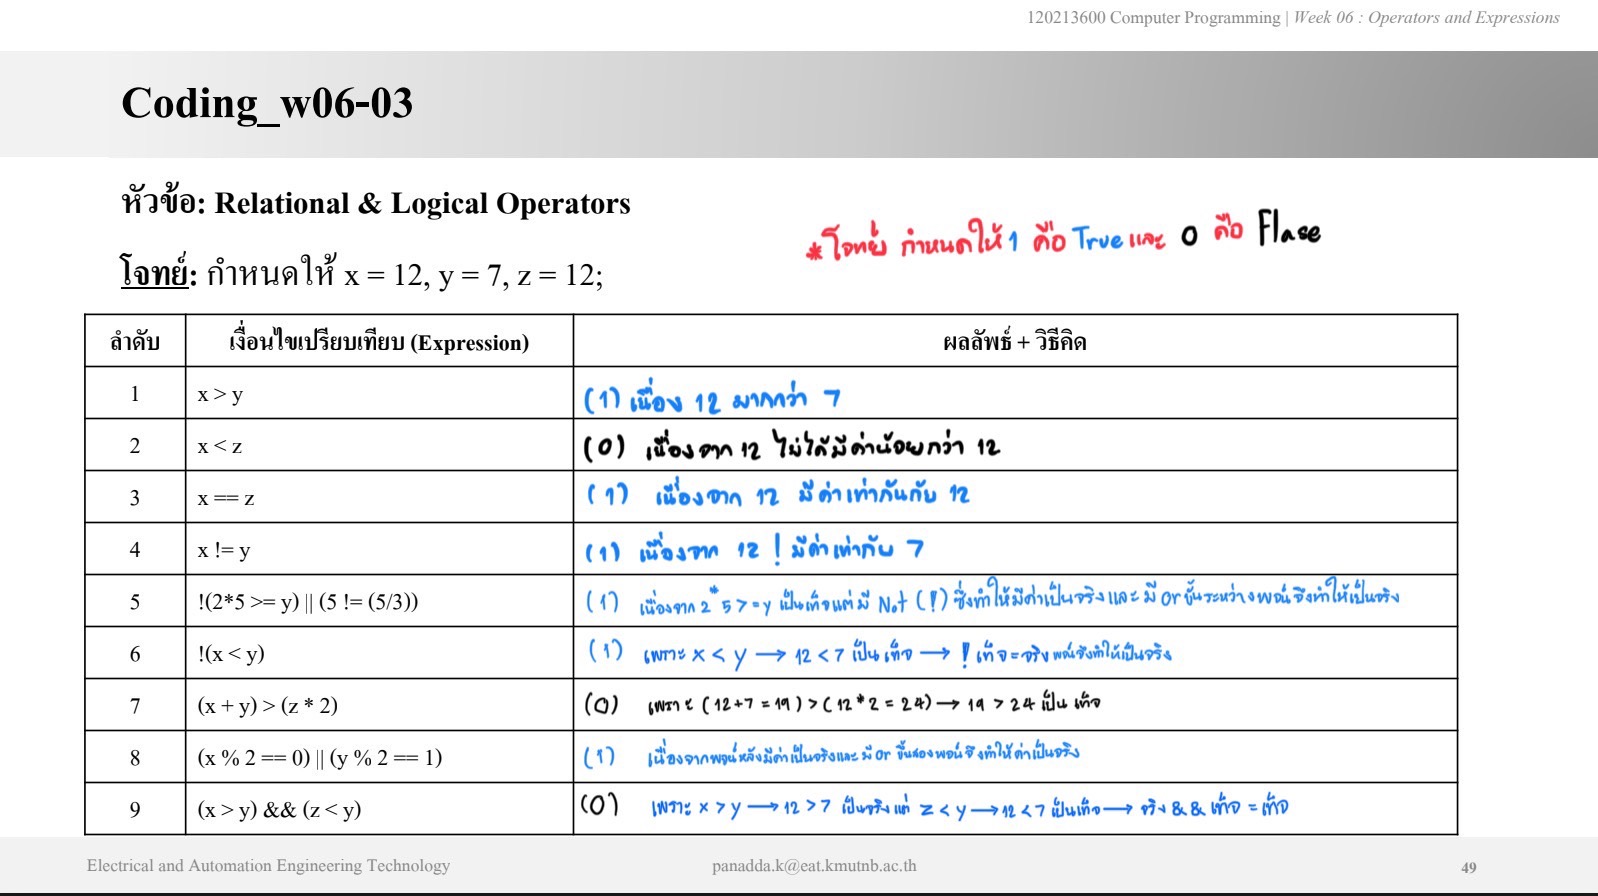 120213600 Computer Programming | Week 06 : Operators and Expressions
Coding_w06-03
หัวข้อ: Relational & Logical Operators
*โจทย์ กำหนดให้ 1 คือ True และ 0 คือ Flase
โจทย์: กำหนดให้ x = 12, y = 7, z = 12;
ลำดับ เงื่อนไขเปรียบเทียบ (Expression) ผลลัพธ์ + วิธีคิด
1 x > y (1) เนื่อง 12 มากกว่า 7
2 x < z (0) เนื่องจาก 12 ไม่ได้มีค่าน้อยกว่า 12
3 x == z (1) เนื่องจาก 12 มีค่าเท่ากันกับ 12
4 x != y (1) เนื่องจาก 12 ! มีค่าเท่ากับ 7
5 !(2*5 >= y) || (5 != (5/3)) (1) เนื่องจาก 2*5 >=y เป็นเท็จแต่มี Not (!) ซึ่งทำให้มีค่าเป็นจริงและ มี or ขั้นระหว่างพจน์ จึงทำให้เป็นจริง
6 !(x < y) (1) เพราะ x < y → 12 < 7 เป็น เท็จ → ! เท็จ = จริง พจน์จึงทำให้เป็นจริง
7 (x + y) > (z * 2) (0) เพราะ (12+7 = 19) > (12*2 = 24) → 19 > 24 เป็น เท็จ
8 (x % 2 == 0) || (y % 2 == 1) (1) เนื่องจากพจน์หลังมีค่าเป็นจริงและ มี or ขั้นสองพจน์ จึงทำให้ค่าเป็นจริง
9 (x > y) && (z < y) (0) เพราะ x > y → 12 > 7 เป็นจริง แต่ z < y → 12 < 7 เป็นเท็จ → จริง && เท็จ = เท็จ
Electrical and Automation Engineering Technology panadda.k@eat.kmutnb.ac.th 49